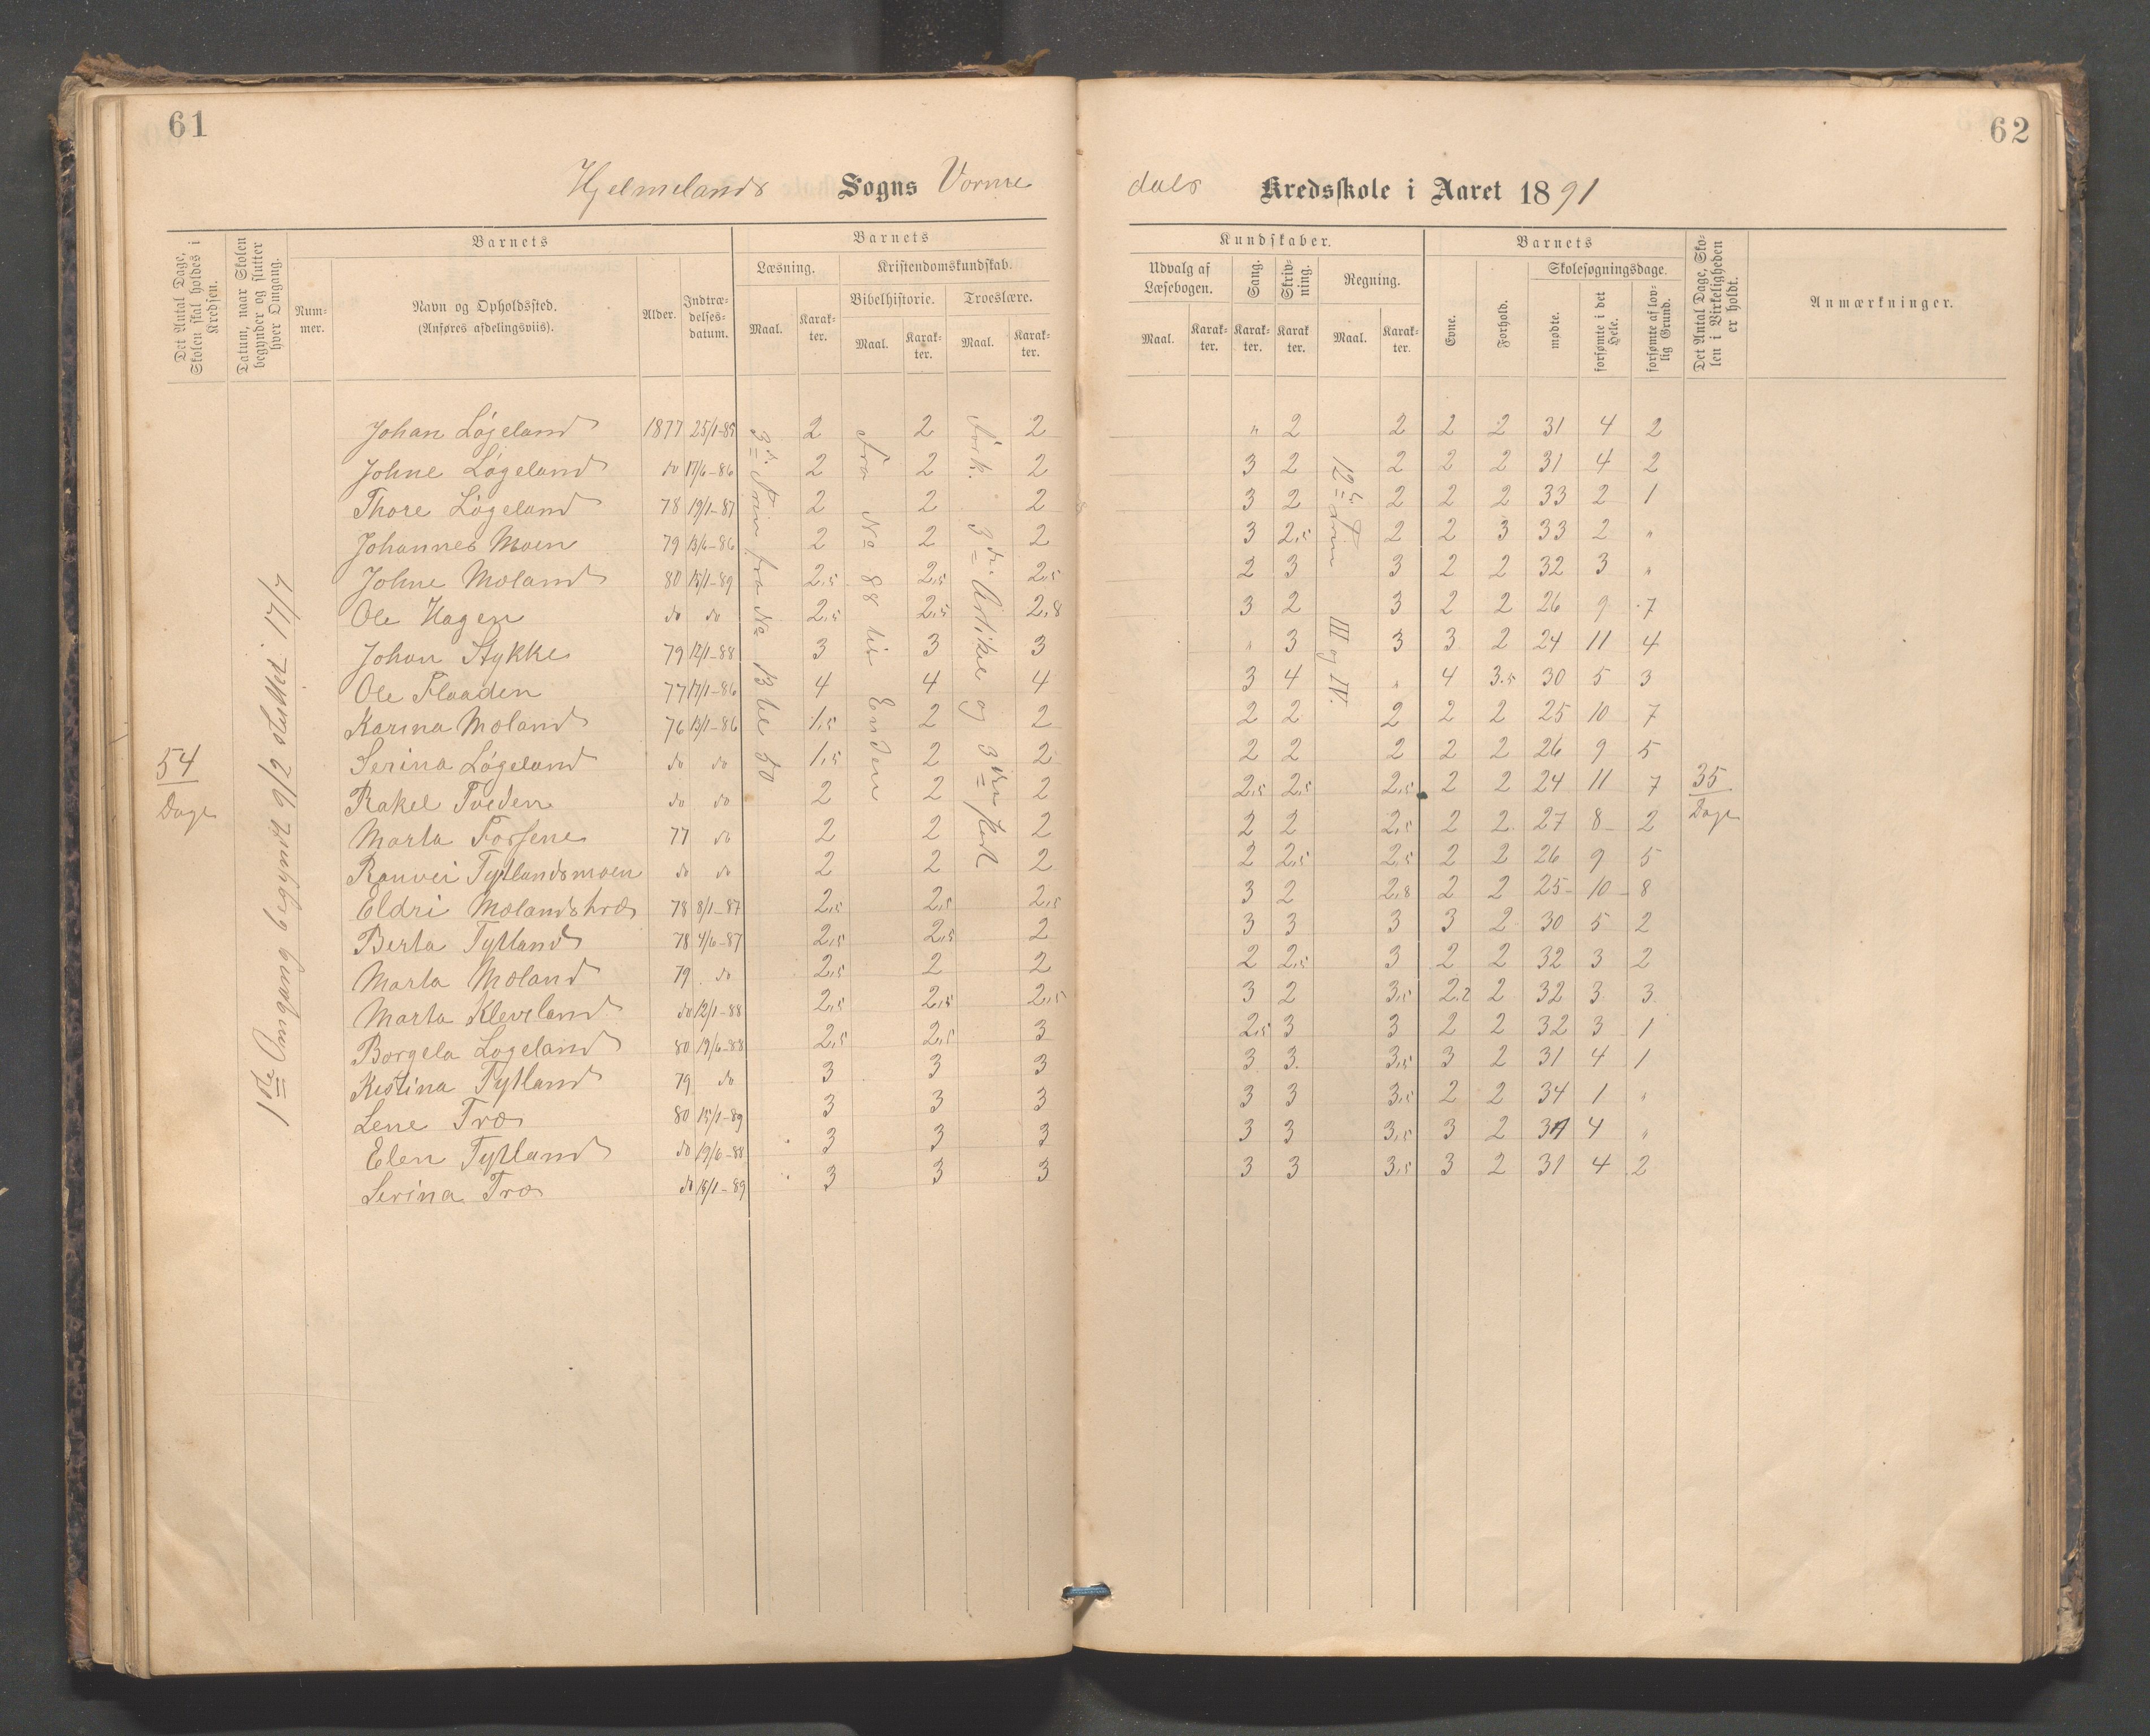 61
62
Hjelmelands Sogns Vorme
dals Kredsskole i Aaret 1891
Det Antal Dage, Skolen skal holdes i Kredsen.
Datum, naar Skolen begynder og slutter hver Omgang.
Barnets
Num-
mer.
Navn og Opholdssted.
(Anføres afdelingsviis).
Alder.
Indtræ-
delses-
datum.
Barnets
Læsning.
Maal.
Karak-
ter.
Kristendomskundskab.
Bibelhistorie.
Maal.
Karak-
ter.
Troeslære.
Maal.
Karak-
ter.
Kundskaber.
Udvalg af
Læsebogen.
Maal.
Karak-
ter.
Sang.
Karak-
ter.
Skriv-
ning.
Karak
ter.
Regning.
Maal.
Karak-
ter.
Barnets
Evne.
Forhold.
Skolesøgningsdage.
mødte.
forsømte i det Hele.
forsømte af lov-
lig Grund.
Det Antal Dage, Sko-
len i Virkeligheden
er holdt.
Anmærkninger.
54
Dage
1ste Omgang begyndt 9/2 sluttet 17/7
3die Trin fra No 13 til 50
Fra No 88 til Enden
Fork. 3die Artikel og 3die Part
12te Trin III og IV.
35
Dage
Johan Løgeland 1877 25/1-85 2 2 2 " 2 2 2 2 31 4 2
Johne Løgeland do 17/6-86 2 2 2 3 2 2 2 2 31 4 2
Thore Løgeland 78 19/1-87 2 2 2 3 2 2 2 2 33 2 1
Johannes Moen 79 13/6-86 2 2 2 3 2,5 2 2 3 33 2 "
Johne Moland 80 15/1-89 2,5 2,5 2,5 2 3 3 2 2 32 3 "
Ole Hagen do do 2,5 2,5 2,8 3 2 3 2 2 26 9 7
Johan Stykke 79 12/1-88 3 3 3 " 3 3 3 2 24 11 4
Ole Flaaden 77 17/1-86 4 4 4 3 4 " 4 3.5 30 5 3
Karina Moland 76 13/1-86 1,5 2 2 2 2 2 2 2 25 10 7
Serina Løgeland do do 1,5 2 2 2 2 2 2 2 26 9 5
Rakel Tveden do do 2 2 2 2,5 2,5 2,5 2 2 24 11 7
Marta Fossene 77 do 2 2 2 2 2 2,5 2 2 27 8 2
Ranvei Tytlandsmoen do do 2 2 2 2 2,5 2,5 2 2 26 9 5
Eldri Molandstræ 78 8/1-87 2,5 2,5 2,5 3 2 2,8 2 2 25 10 8
Berta Tytland 78 4/6-87 2,5 2,5 2 3 3 3 3 2 30 5 2
Marta Moland 79 do 2,5 2 2 2 2,5 3 2 2 32 3 2
Marta Kleveland do 12/1-88 2,5 2,5 2,5 3 2 3,5 2.2 2 32 3 3
Borgela Løgeland 80 19/6-88 2,5 2,5 3 2,5 3 3 2 2 32 3 1
Kistina Tytland 79 do 3 3 3 3 3 3,5 3 2 31 4 1
Lene Træ 80 15/1-89 3 3 3 3 3 3,5 2 2 34 1 "
Elen Tytland do 19/6-88 3 3 3 3 3 3,5 3 2 31 4 "
Serina Træ do 18/1-89 3 3 3 3 3 3,5 3 2 31 4 2